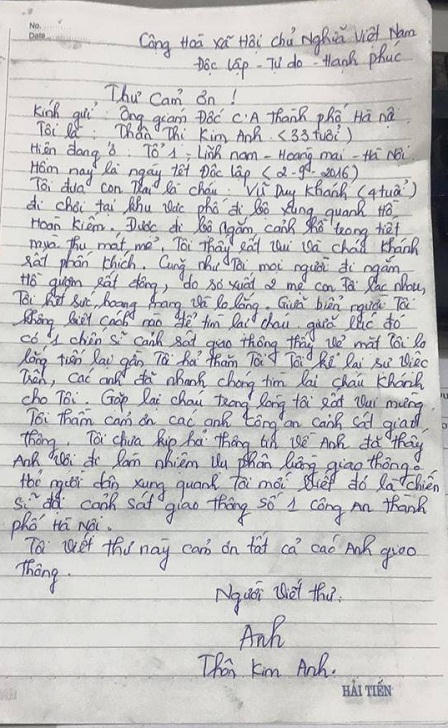 No.
Date
Cộng Hoà xã Hội chủ Nghĩa Việt Nam
Độc lập - Tự do - Hạnh phúc
Thư Cảm ơn !
Kính gửi : Ông giám Đốc C.A Thành phố Hà nội
Tôi là : Thân Thị Kim Anh (33 tuổi)
Hiện đang ở Tổ 1 : Lĩnh nam - Hoàng mai - Hà Nội
Hôm nay là ngày tết Độc lập (2-9-2016)
Tôi đưa con Trai là cháu : Vũ Duy Khánh (4 tuổi)
đi chơi tại khu vực phố đi bộ xung quanh Hồ
Hoàn Kiếm. Được đi bộ ngắm cảnh hồ trong tiết
mùa thu mát mẻ. Tôi thấy rất vui và cháu Khánh
rất phấn khích. Cũng như Tôi mọi người đi ngắm
Hồ gươm rất đông, do sơ xuất 2 mẹ con Tôi lạc nhau,
Tôi hết sức hoang mang và lo lắng. Giữa biển người Tôi
không biết cách nào để tìm lại cháu giữa lúc đó
có 1 chiến sĩ cảnh sát giao thông thấy vẻ mặt Tôi lo
lắng tiến lại gần Tôi hỏi thăm Tôi Tôi kể lại sự việc
trên, các anh đã nhanh chóng tìm lại cháu Khánh
cho Tôi. Gặp lại cháu trong lòng tôi rất vui mừng
Tôi thầm cảm ơn các anh Công an cảnh sát giao
thông. Tôi chưa kịp hỏi thông tin về Anh đã thấy
Anh vội đi làm nhiệm vụ phân luồng giao thông.
Hỏi người dân xung quanh Tôi mới biết đó là chiến
sĩ đội cảnh sát giao thông số 1 công An thành
phố Hà Nội.
Tôi viết thư này cảm ơn tất cả các Anh giao
thông.
Người viết thư.
Anh
Thân Kim Anh.
HẢI TIẾN